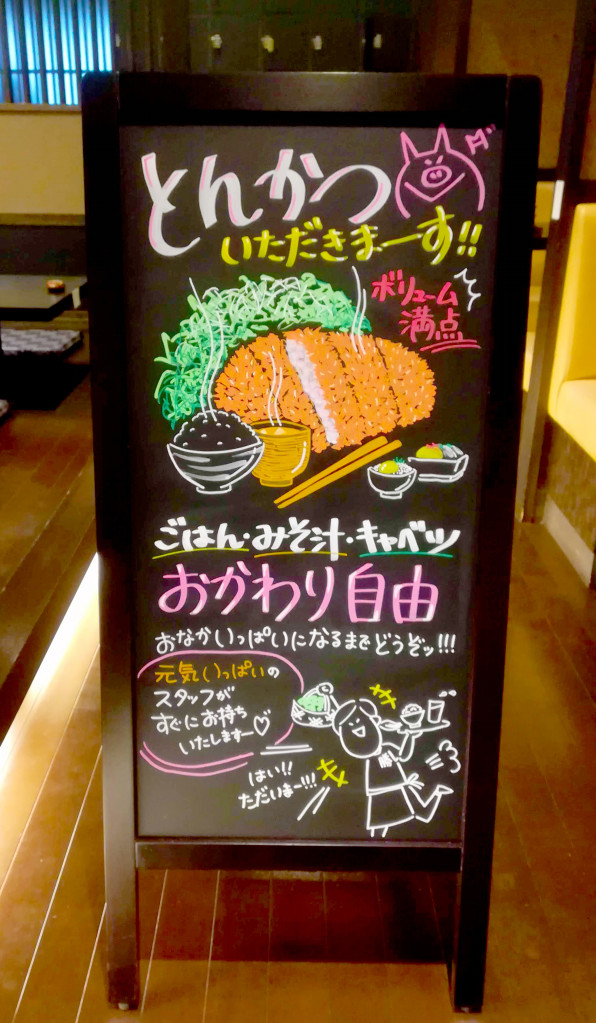 とんかつ
いただきまーす!!
ボリューム
満点
ごはん・みそ汁・キャベツ
おかわり自由
おなかいっぱいになるまでどうぞッ!!!
元気いっぱいの
スタッフが
すぐにお持ち
いたしますー♡
はい!!
ただいまー!!!